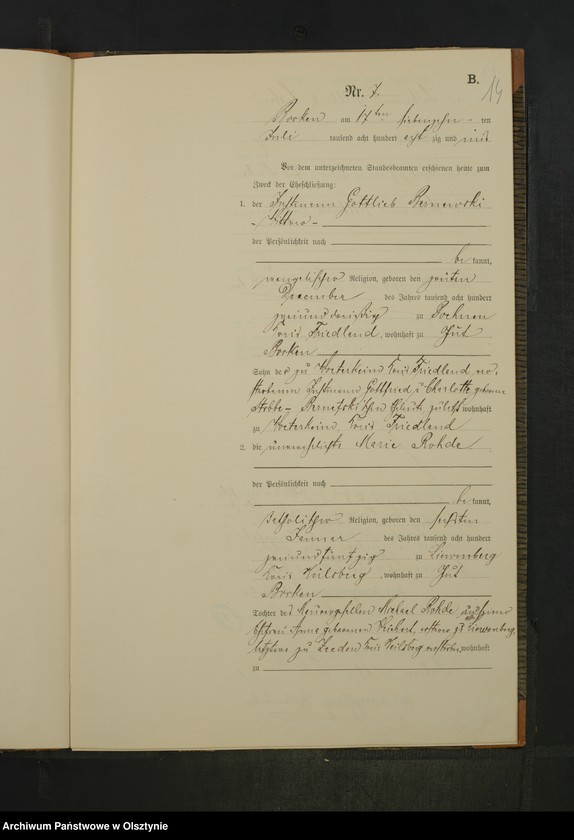 B.
14
Nr. 7.
Borken am 17ten siebenzehn ten
Juli tausend acht hundert acht zig und
Vor dem unterzeichneten Standesbeamten erschienen heute zum
Zweck der Eheschließung:
1. der Instmann Gottlieb Bernewski
Wittwer
der Persönlichkeit nach
be kannt,
evangelischer Religion, geboren den zweiten
December des Jahres tausend acht hundert
zweiunddreißig zu
Kreis Friedland, wohnhaft zu Gut
Borken
Sohn der zu Kreis Friedland ver-
storbenen Instmann Gottfried u Charlotte geborene
Eheleute zuletzt wohnhaft
zu Kreis Friedland
2. die unverehelichte Marie Rohde
der Persönlichkeit nach
be kannt,
katholischer Religion, geboren den sechsten
Januar des Jahres tausend acht hundert
zweiundfünfzig zu Liewenberg
Kreis Heilsberg, wohnhaft zu Gut
Borken
Tochter des Maurergesellen Michael Rohde und seiner
Ehefrau Anna geborenen, ersterer zu Liewenberg,
letztere zu Kreis Heilsberg verstorben, wohnhaft
zu
Archiwum Państwowe w Olsztynie